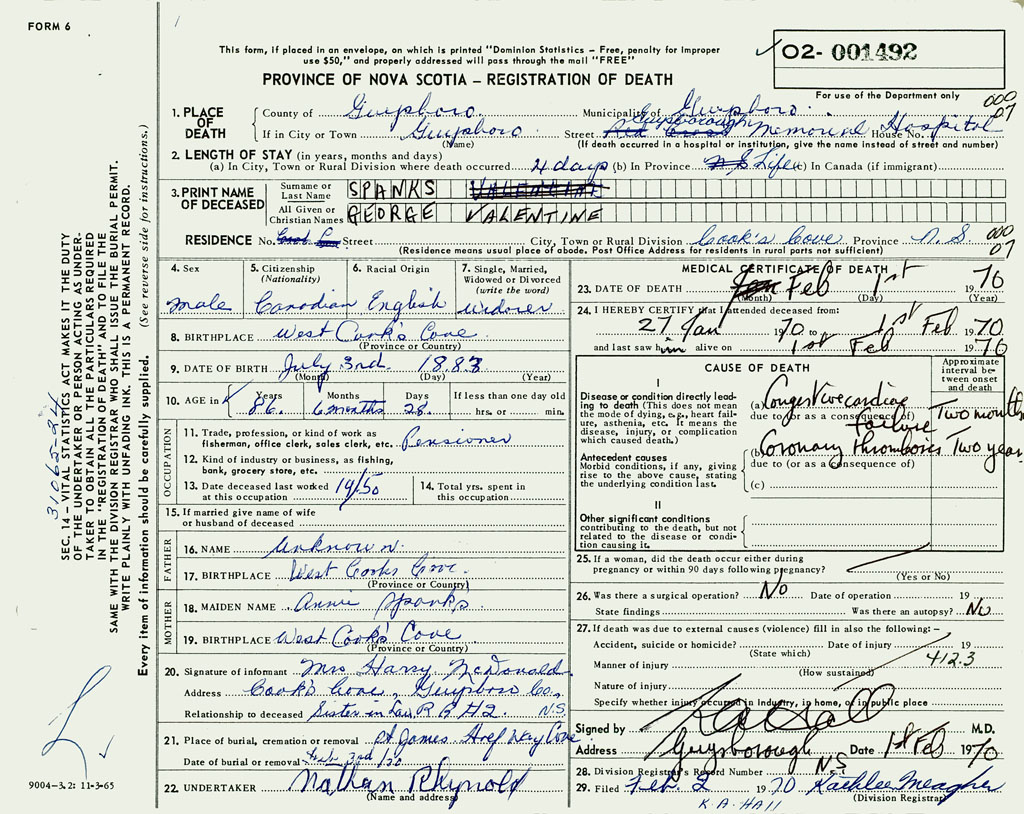 FORM 6
This form, if placed in an envelope, on which is printed "Dominion Statistics – Free, penalty for improper
use $50," and properly addressed will pass through the mail "FREE"
O2- 001492
For use of the Department only
PROVINCE OF NOVA SCOTIA – REGISTRATION OF DEATH
000
07
1. PLACE OF DEATH
County of Guysboro Municipality of Guysboro
If in City or Town Guysboro Street Guysborough Memorial Hospital House No.
(Name) (If death occurred in a hospital or institution, give the name instead of street and number)
2. LENGTH OF STAY (in years, months and days)
(a) In City, Town or Rural Division where death occurred 4 days (b) In Province Life (c) In Canada (if immigrant)
3. PRINT NAME OF DECEASED
Surname or Last Name SPANKS
All Given or Christian Names GEORGE VALENTINE
RESIDENCE No. Street City, Town or Rural Division Cook's Cove Province N.S. 000
07
(Residence means usual place of abode. Post Office Address for residents in rural parts not sufficient)
4. Sex 5. Citizenship (Nationality) 6. Racial Origin 7. Single, Married, Widowed or Divorced (write the word)
male Canadian English widower
8. BIRTHPLACE West Cook's Cove
(Province or Country)
9. DATE OF BIRTH July 3rd 1883
(Month) (Day) (Year)
10. AGE in Years Months Days If less than one day old
86 6 months 28 hrs. or min.
OCCUPATION
11. Trade, profession, or kind of work as fisherman, office clerk, sales clerk, etc. Pensioner
12. Kind of industry or business, as fishing, bank, grocery store, etc.
13. Date deceased last worked at this occupation 1950 14. Total yrs. spent in this occupation
15. If married give name of wife or husband of deceased
FATHER
16. NAME Unknown
17. BIRTHPLACE West Cooks Cove
(Province or Country)
MOTHER
18. MAIDEN NAME Annie Spanks
19. BIRTHPLACE West Cook's Cove
(Province or Country)
20. Signature of informant Mrs Harry McDonald
Address Cook's Cove, Guysboro Co., N.S
Relationship to deceased Sister in Law R R # 2
21. Place of burial, cremation or removal St James
Date of burial or removal Feb 3rd /70
22. UNDERTAKER Nathan Rhynold
(Name and address)
MEDICAL CERTIFICATE OF DEATH
23. DATE OF DEATH Feb 1st 1970
(Month) (Day) (Year)
24. I HEREBY CERTIFY that I attended deceased from:
27 Jan 1970 to 1st Feb 1970
and last saw him alive on 1st Feb 1970
CAUSE OF DEATH
Approximate interval between onset and death
I
Disease or condition directly leading to death (This does not mean the mode of dying, e.g., heart failure, asthenia, etc. It means the disease, injury, or complication which caused death.)
(a) Congestive cardiac failure Two months
due to (or as a consequence of)
Antecedent causes
Morbid conditions, if any, giving rise to the above cause, stating the underlying condition last.
(b) Coronary thrombosis Two years
due to (or as a consequence of)
(c)
II
Other significant conditions
contributing to the death, but not related to the disease or condition causing it.
25. If a woman, did the death occur either during
pregnancy or within 90 days following pregnancy?
(Yes or No)
26. Was there a surgical operation? No Date of operation 19
State findings Was there an autopsy? No
27. If death was due to external causes (violence) fill in also the following: –
Accident, suicide or homicide? Date of injury 19
(State which)
412.3
Manner of injury
(How sustained)
Nature of injury
Specify whether injury occurred in industry, in home, or in public place
Signed by M.D.
Address Guysborough N S Date 1st Feb 1970
28. Division Registrar's Record Number
29. Filed Feb. 2 1970 Kathleen Meagher
(Division Registrar)
K.A. HAll
31065-24
SEC. 14 – VITAL STATISTICS ACT MAKES IT THE DUTY
OF THE UNDERTAKER OR PERSON ACTING AS UNDER-
TAKER TO OBTAIN ALL THE PARTICULARS REQUIRED
IN THE "REGISTRATION OF DEATH" AND TO FILE THE
SAME WITH THE DIVISION REGISTRAR WHO SHALL ISSUE THE BURIAL PERMIT.
WRITE PLAINLY WITH UNFADING INK. THIS IS A PERMANENT RECORD.
Every item of information should be carefully supplied. (See reverse side for instructions.)
9004–3.2: 11-3-65